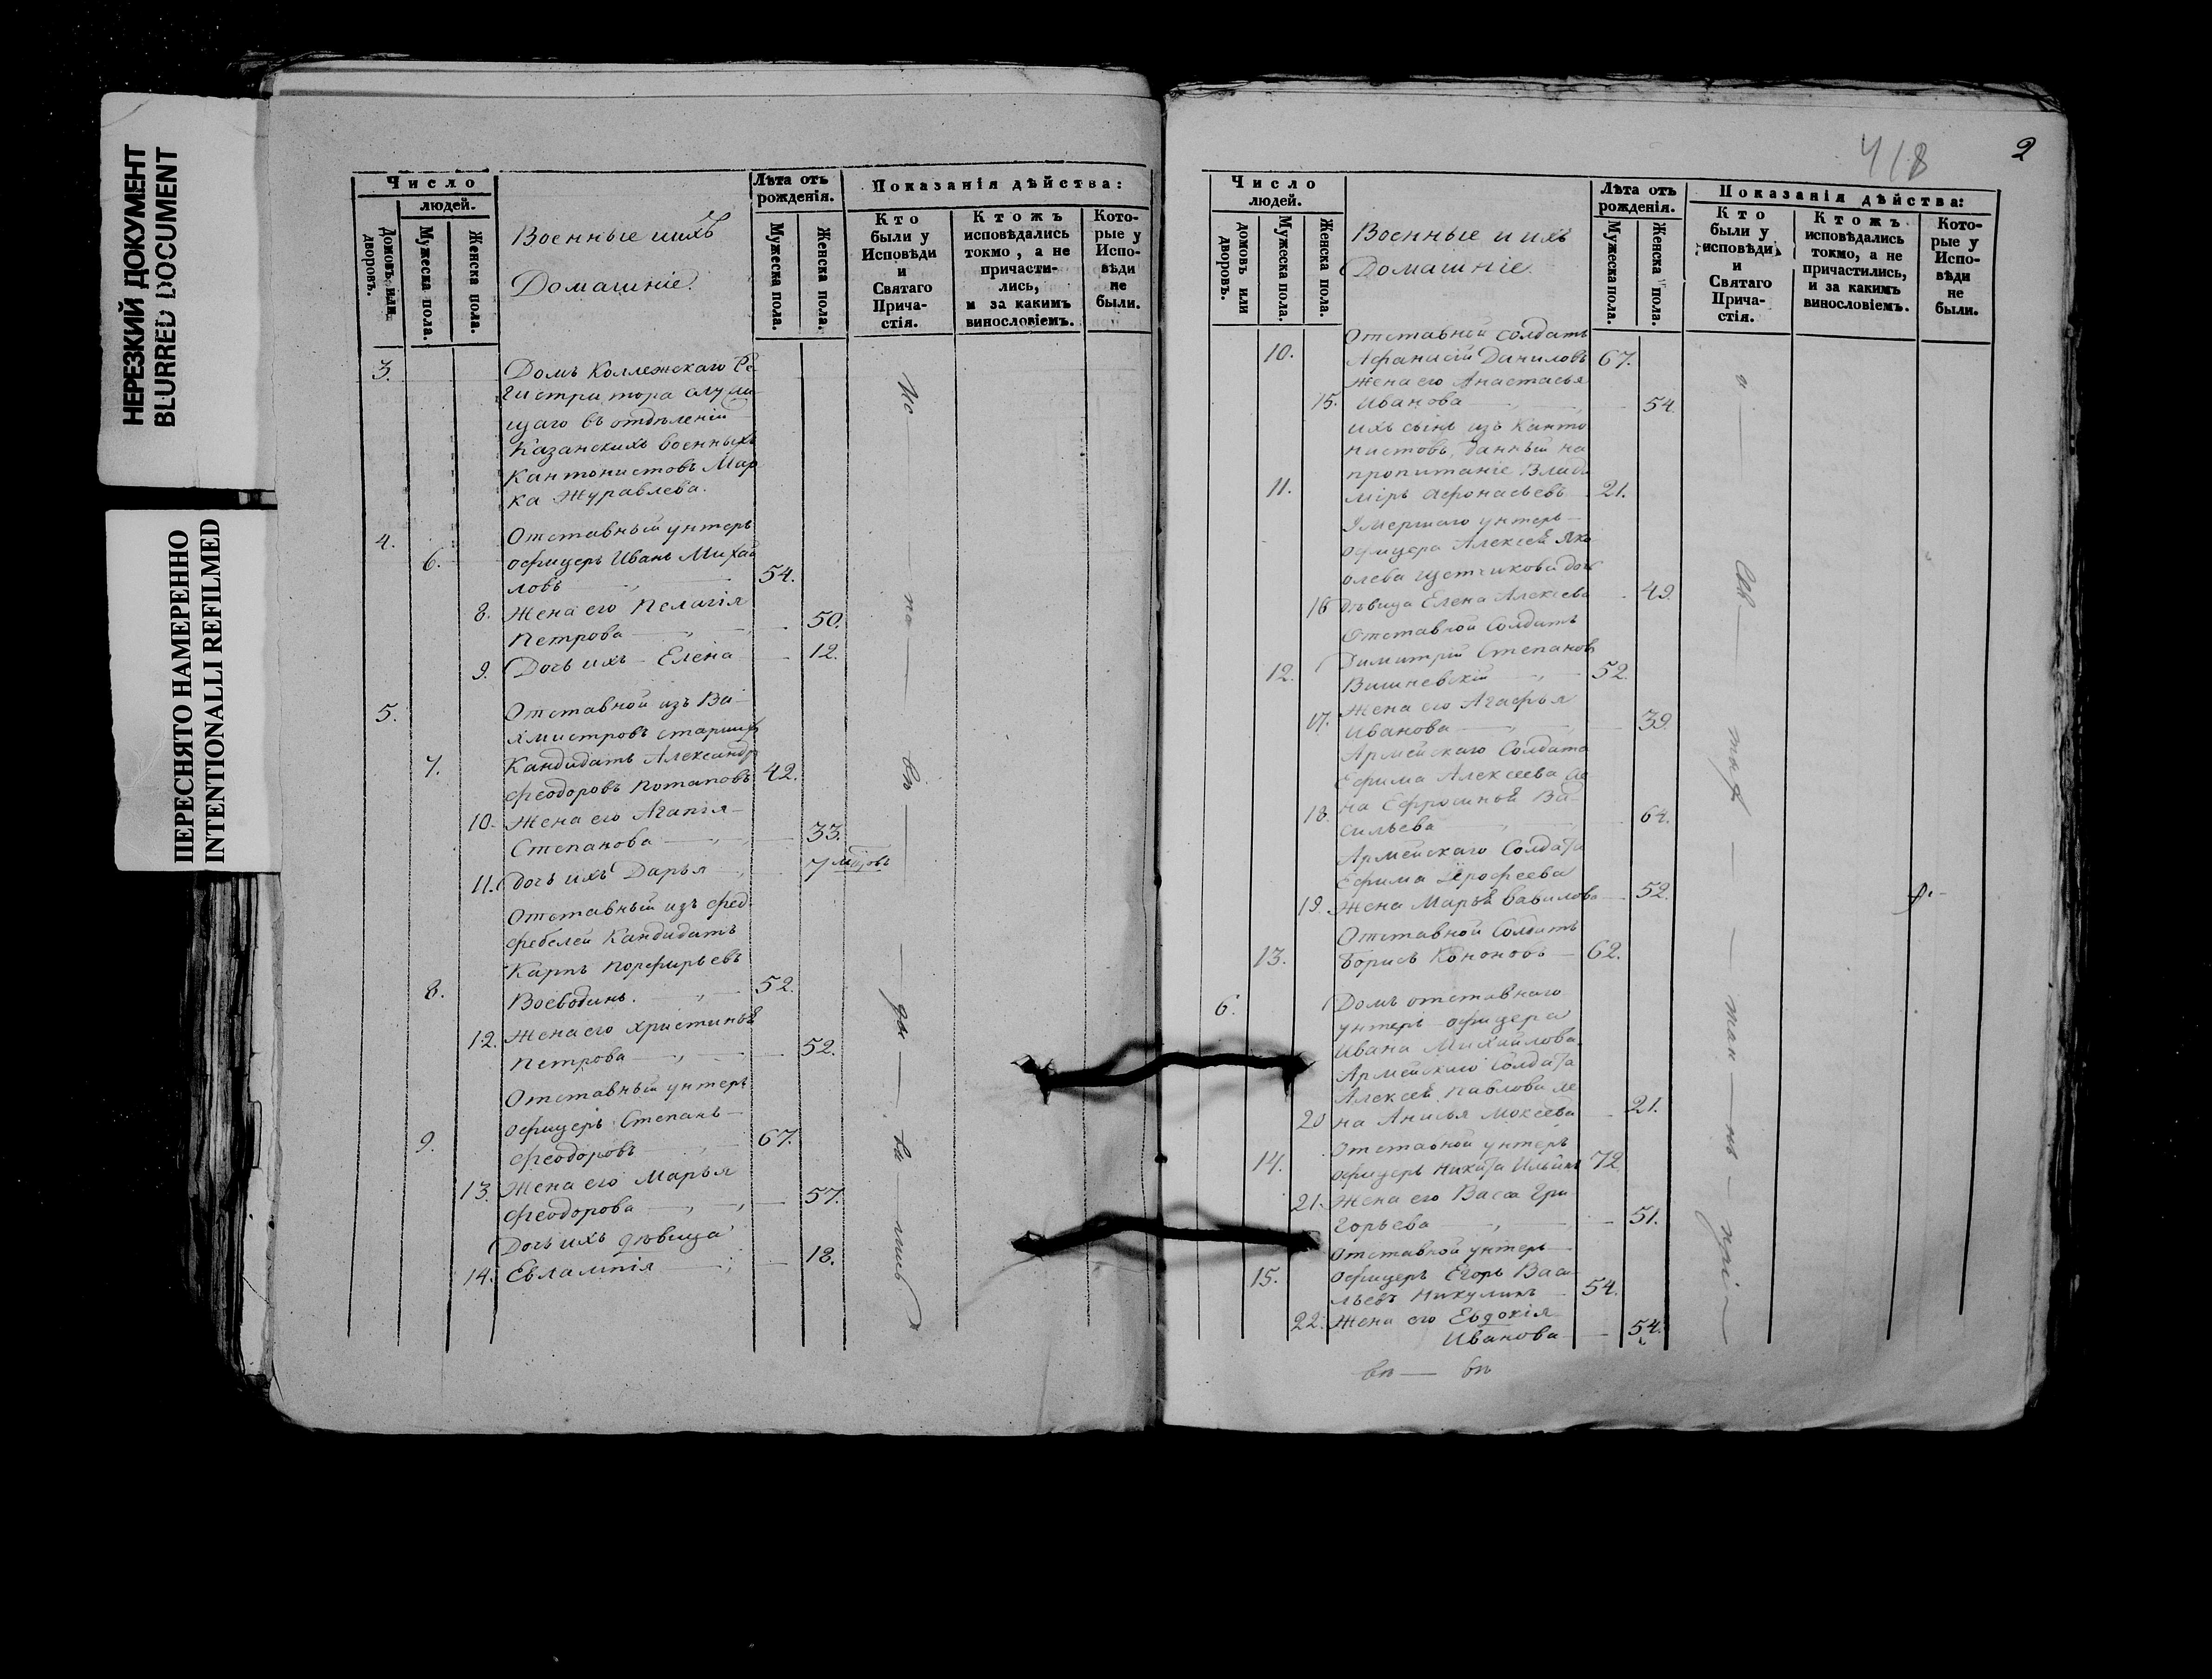 НЕРЕЗКИЙ ДОКУМЕНТ
BLURRED DOCUMENT
ПЕРЕСНЯТО НАМЕРЕННО
INTENTIONALLI REFILMED
Число
людей.
Домовъ или дворовъ.
Мужеска пола.
Женска пола.
Военные и ихъ
Домашніе.
Лѣта отъ рожденія.
Мужеска пола.
Женска пола.
Показанія дѣйства:
Кто были у Исповѣди и Святаго Прича-стія.
Ктожъ исповѣдались токмо, а не причасти-лись, и за какимъ винословіемъ.
Кото-рые у Испо-вѣди не были.
3. Домъ Коллежскаго Ре
гистратора служа
щаго въ отдѣленіи
Казанскихъ военныхъ
Кантонистовъ Мар
ка Журавлева.
4. Отставный унтеръ
6. офицеръ Иванъ Михай
ловъ 54.
8. Жена его Пелагія
Петрова 50.
9. Дочь ихъ Елена 12.
5. Отставной изъ Ва
хмистровъ старшій
7. Кандидатъ Александръ
Феодоровъ Потаповъ 42.
10. Жена его Агапія
Степанова 33.
11. Дочь ихъ Дарья 7 мѣсцовъ
Отставный изъ фед
фебелей Кандидатъ
Карпъ Порфирьевъ
8. Воеводинъ. 52.
12. Жена его Христинья
Петрова 52.
Отставный унтеръ
офицеръ Степанъ
9. Феодоровъ 67.
13. Жена его Марья
Феодорова 57.
Дочь ихъ дѣвица
14. Евлампія 18.
Ис — по — вѣ — да — ва — лись
418
2
Число
людей.
домовъ или дворовъ.
Мужеска пола.
Женска пола.
Военные и ихъ
Домашніе.
Лѣта отъ рожденія.
Мужеска пола.
Женска пола.
Показанія дѣйства:
Кто были у исповѣди и Святаго Прича-стія.
Ктожъ исповѣдались токмо, а не причастились, и за какимъ винословіемъ.
Кото-рые у Испо-вѣди не были.
Отставной солдатъ
10. Афанасій Даниловъ 67.
Жена его Анастасья
15. Иванова 54.
ихъ сынъ изъ Канто
нистовъ, данный на
пропитаніе Влади
11. міръ Афонасьевъ 21.
Умершаго унтеръ
офицера Алексея Яко
влева дочь
16 Дѣвица Елена Алексеева 49.
Отставной Солдатъ
Димитрій Степановъ
12. Вишневскій 52.
Жена его Агафья
17. Иванова 39.
Армейскаго Солдата
Ефима Алексеева Же
18. на Ефросинья Ва
сильева 64.
Армейскаго Солдата
Ефима Ерофеева
19. Жена Марья Вавилова 52.
Отставной Солдатъ
13. Борисъ Кононовъ 62.
6. Домъ отставнаго
унтеръ офицера
Ивана Михайлова.
Армейскаго Солдата
Алексея Павлова же
20 на Анисья Мокеева 21.
Отставной унтеръ
14. офицеръ Никита Ильинъ 72.
21. Жена его Васса Гри
горьева 51.
Отставной унтеръ
15. офицеръ Егоръ Васи
льевъ Никулинъ 54.
22. Жена его Евдокія
Иванова 54.
и — Св — таин — прі